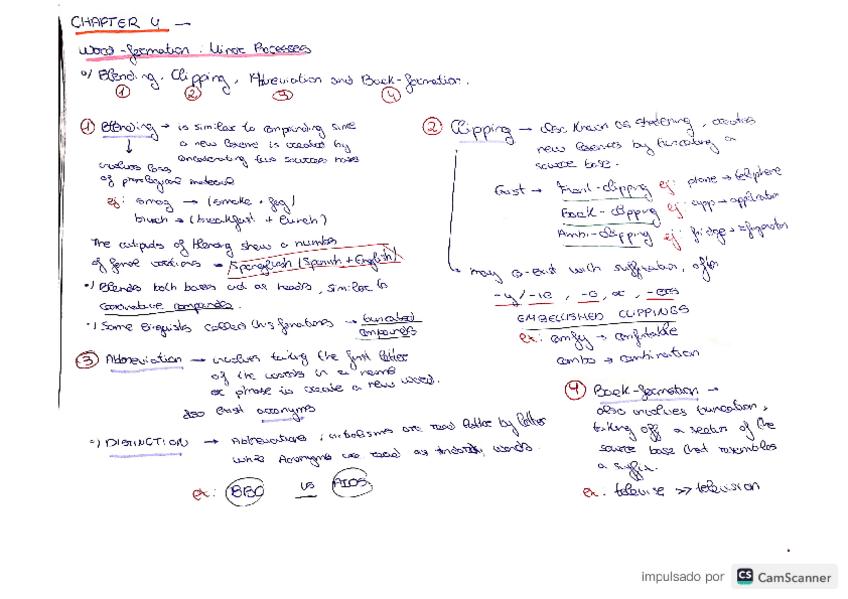 CHAPTER 4 —
Word-formation: Minor Processes
Blending, Clipping, Abbreviation and Back-formation.
1 2 3 4
1 Blending → is similar to compounding since
a new lexeme is created by
concatenating two sources bases
involves loss
of phonological material
ej: smog → (smoke + fog)
brunch → (breakfast + lunch)
The outputs of blending show a number
of formal variations → Spanglish (Spanish + English)
Blends both bases act as heads, similar to
coordinative compounds.
Some linguists collect this formations → truncated
compounds
3 Abbreviation → involves taking the first letter
of the words in a name
or phrase to create a new word.
also exist acronyms
DISTINCTION → Abbreviations, initialisms are read letter by letter
while Acronyms are read as words.
ex: BBC vs AIDS
2 Clipping → also known as shortening, creates
new lexemes by truncating a
source base.
Exist → Front-clipping ej: phone → telephone
Back-clipping ej: app → application
Ambi-clipping ej: fridge → refrigerator
may co-exist with suffixation, often
-y/-ie, -o, or, -ers
EMBELLISHED CLIPPINGS
ex: comfy → comfortable
combo → combination
4 Back-formation →
also involves truncation,
taking off a section of the
source base that resembles
a suffix.
ex. televise >> television
impulsado por CS CamScanner